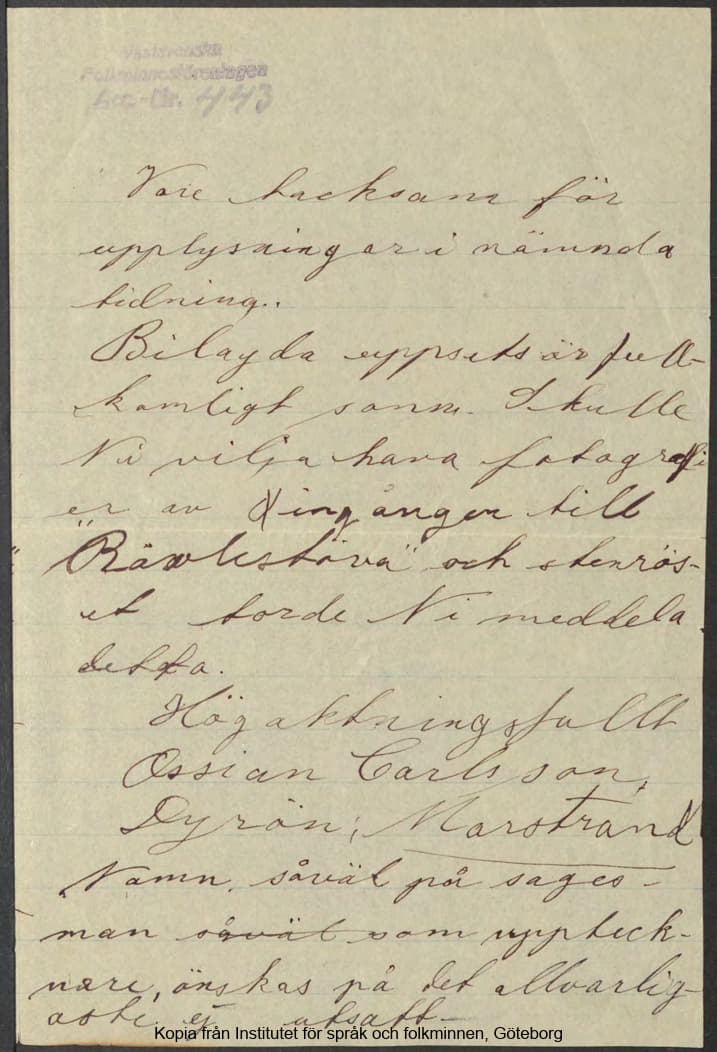 Västsvenska
Folkminnesföreningen
Acc.-Nr. 443
Vore tacksam för
upplysningar i nämnda
tidning.
Bilagda uppsats är full-
komligt sann. Skulle
Ni vilja hava fotografi
er av ingången till
"Rävlestöva" och stenrös-
et torde Ni meddela
detta.
Högaktningsfullt
Ossian Carlsson,
Dyrön, Marstrand
Namn, såväl på sages-
man såväl som uppteck-
nare, önskas på det allvarlig-
aste ej utsatt.
Kopia från Institutet för språk och folkminnen, Göteborg